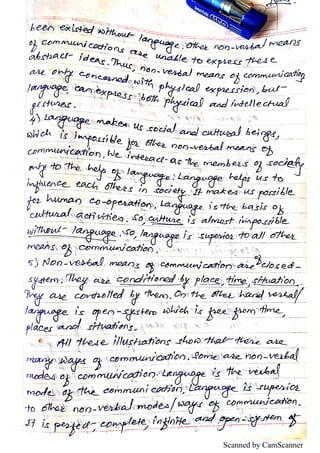 been existed without language. Other non-verbal means
of communications are unable to express these
abstract ideas. Thus, non-verbal means of communication
are only concerned with physical expression, but
language can express both physical and intellectual
gestures.
4) Language makes us social and cultural beings,
which is impossible for other non-verbal means of
communication. We interact as the members of society
only to the help of language. Language helps us to
influence each others in society. It makes us possible
for human co-operation, Language is the basis of
cultural activities. So, culture is almost impossible
without language. So, language is superior to all other
means of communication.
5) Non-verbal means of communication are of closed-
system. They are conditioned by place, time, situation.
They are controlled by them. On the other hand verbal/
language is open-system which is free from time,
places and situations.
All these illustrations show that there are
many ways of communication. Some are non-verbal
modes of communication. Language is the verbal
mode of the communication. Language is superior
to other non-verbal modes/ways of communication.
It is perfect, complete, infinite and open-system of
Scanned by CamScanner